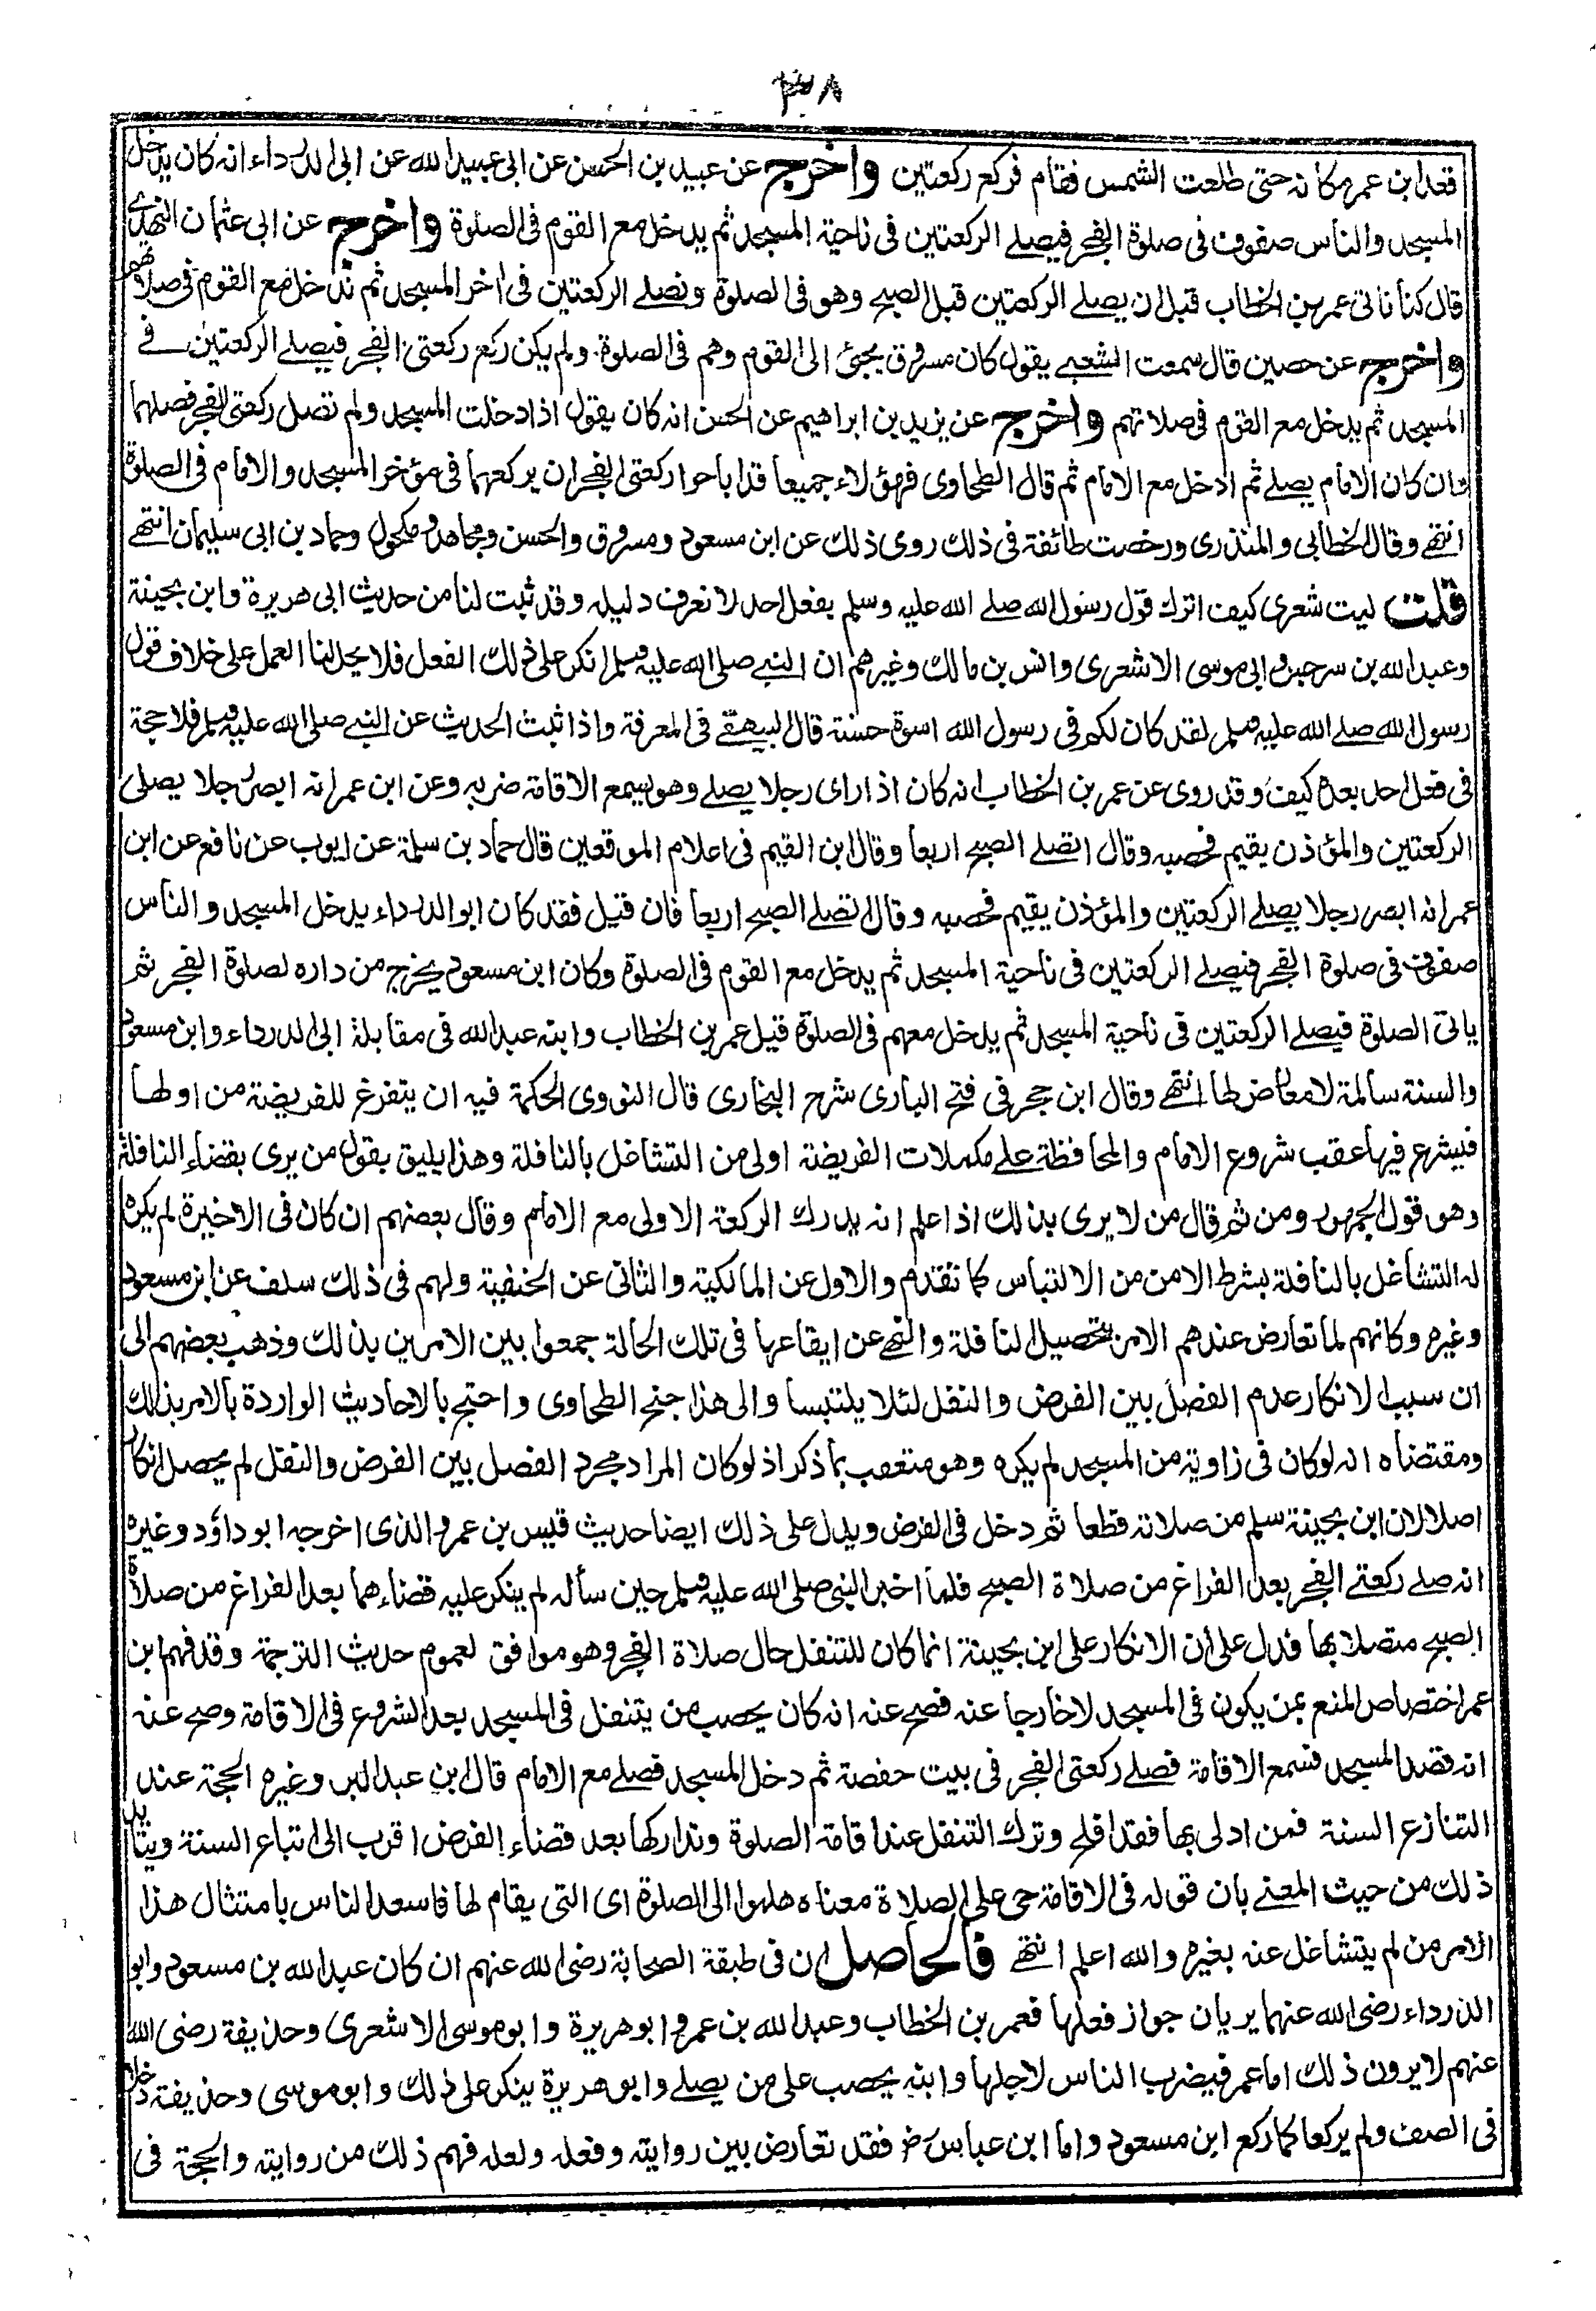 ٣٨
قعد ابن عمر مكانه حتى طلعت الشمس فقام فركع ركعتين واخرج عن عبيد بن الحسن عن ابى عبيد الله عن ابى الدرداء انه كان يدخل
المسجد والناس صفوف فى صلوة الفجر فيصلے الركعتين فى ناحية المسجد ثم يدخل مع القوم فى الصلوة واخرج عن ابى عثمان النهدے
قال كنا ناتى عمر بن الخطاب قبل ان يصلے الركعتين قبل الصبح وهو فى الصلوة ونصلے الركعتين فى اخر المسجد ثم ندخل مع القوم فى صلاتهم
واخرج عن حصين قال سمعت الشعبے يقول كان مسروق يجئ الى القوم وهم فى الصلوة ولم يكن ركع ركعتى الفجر فيصلے الركعتين فے
المسجد ثم يدخل مع القوم فى صلاتهم واخرج عن يزيد بن ابراهيم عن الحسن انه كان يقول اذا دخلت المسجد ولم تصل ركعتى الفجر فصلهما
وان كان الامام يصلے ثم ادخل مع الامام ثم قال الطحاوى فهؤلاء جميعا قد اباحوا ركعتى الفجر ان يركعهما فى مؤخر المسجد والامام فى الصلوة
انتهے وقال الخطابى والمنذرى ورخصت طائفة فى ذلك روى ذلك عن ابن مسعود ومسروق والحسن ومجاهد ومكحول وحماد بن ابى سليمان انتهے
قلت ليت شعرى كيف اترك قول رسول الله صلے الله عليه وسلم بفعل احد لا نعرف دليله وقد ثبت لنا من حديث ابى هريرة وابن بحينة
وعبد الله بن سرجس وابى موسى الاشعرى وانس بن مالك وغيرهم ان النبے صلى الله عليه وسلم انكر على ذلك الفعل فلا يحل لنا العمل على خلاف قول
رسول الله صلے الله عليه وسلم لقد كان لكم فى رسول الله اسوة حسنة قال البيهقے فى المعرفة واذا ثبت الحديث عن النبے صلى الله عليه وسلم فلا حجة
فى فعل احد بعده كيف وقد روى عن عمر بن الخطاب انه كان اذا راى رجلا يصلے وهو يسمع الاقامة ضربه وعن ابن عمر انه ابصر رجلا يصلى
الركعتين والمؤذن يقيم فحصبه وقال اتصلے الصبح اربعا وقال ابن القيم فى اعلام الموقعين قال حماد بن سلمة عن ايوب عن نافع عن ابن
عمر انه ابصر رجلا يصلے الركعتين والمؤذن يقيم فحصبه وقال اتصلے الصبح اربعا فان قيل فقد كان ابو الدرداء يدخل المسجد والناس
صفوف فى صلوة الفجر فيصلے الركعتين فى ناحية المسجد ثم يدخل مع القوم فى الصلوة وكان ابن مسعود يخرج من داره لصلوة الفجر ثم
ياتى الصلوة فيصلے الركعتين فى ناحية المسجد ثم يدخل معهم فى الصلوة قيل عمر بن الخطاب وابنه عبد الله فى مقابلة ابى الدرداء وابن مسعود
والسنة سالمة لا معارض لها انتهے وقال ابن حجر فى فتح البارى شرح البخارى قال النووى الحكمة فيه ان يتفرغ للفريضة من اولها
فيشرع فيها عقب شروع الامام والمحافظة علے مكملات الفريضة اولى من التشاغل بالنافلة وهذا يليق بقول من يرى بقضاء النافلة
وهو قول الجمهور ومن ثم قال من لا يرى بذلك اذا علم انه يدرك الركعة الاولى مع الامام وقال بعضهم ان كان فى الاخيرة لم يكره
له التشاغل بالنافلة بشرط الامن من الالتباس كما تقدم والاول عن المالكية والثانى عن الحنفية ولهم فى ذلك سلف عن ابن مسعود
وغيره وكانهم لما تعارض عندهم الامر بتحصيل النافلة والنهے عن ايقاعها فى تلك الحالة جمعوا بين الامرين بذلك وذهب بعضهم الى
ان سبب الانكار عدم الفصل بين الفرض والنفل لئلا يلتبسا والى هذا جنح الطحاوى واحتج بالاحاديث الواردة بالامر بذلك
ومقتضاه انه لو كان فى زاوية من المسجد لم يكره وهو متعقب بما ذكر اذ لو كان المراد مجرد الفصل بين الفرض والنفل لم يحصل انكار
اصلا لان ابن بحينة سلم من صلاته قطعا ثم دخل فى الفرض ويدل على ذلك ايضا حديث قيس بن عمرو الذى اخرجه ابو داؤد وغيره
انه صلے ركعتے الفجر بعد الفراغ من صلاة الصبح فلما اخبر النبى صلى الله عليه وسلم حين سأله لم ينكر عليه قضاءهما بعد الفراغ من صلاة
الصبح متصلا بها فدل على ان الانكار على ابن بحينة انما كان للتنفل حال صلاة الفجر وهو موافق لعموم حديث الترجمة وقد فهم ابن
عمر اختصاص المنع بمن يكون فى المسجد لا خارجا عنه فصح عنه انه كان يحصب من يتنفل فى المسجد بعد الشروع فى الاقامة وصح عنه
انه قصد المسجد فسمع الاقامة فصلے ركعتى الفجر فى بيت حفصة ثم دخل المسجد فصلے مع الامام قال ابن عبد البر وغيره الحجة عند
التنازع السنة فمن ادلى بها فقد افلح وترك التنفل عند اقامة الصلوة وتداركها بعد قضاء الفرض اقرب الى اتباع السنة ويتايد
ذلك من حيث المعنے بان قوله فى الاقامة حى على الصلاة معناه هلموا الى الصلوة اى التى يقام لها فاسعد الناس بامتثال هذا
الامر من لم يتشاغل عنه بغيره والله اعلم انتهے فالحاصل ان فى طبقة الصحابة رضى الله عنهم ان كان عبد الله بن مسعود وابو
الدرداء رضى الله عنهما يريان جواز فعلها فعمر بن الخطاب وعبد الله بن عمرو ابو هريرة وابو موسى الاشعرى وحذيفة رضى الله
عنهم لا يرون ذلك اما عمر فيضرب الناس لاجلها وابنه يحصب على من يصلے وابو هريرة ينكر على ذلك وابو موسى وحذيفة دخلا
فى الصف ولم يركعا كما ركع ابن مسعود واما ابن عباس رض فقد تعارض بين روايته وفعله ولعله فهم ذلك من روايته والحجة فى